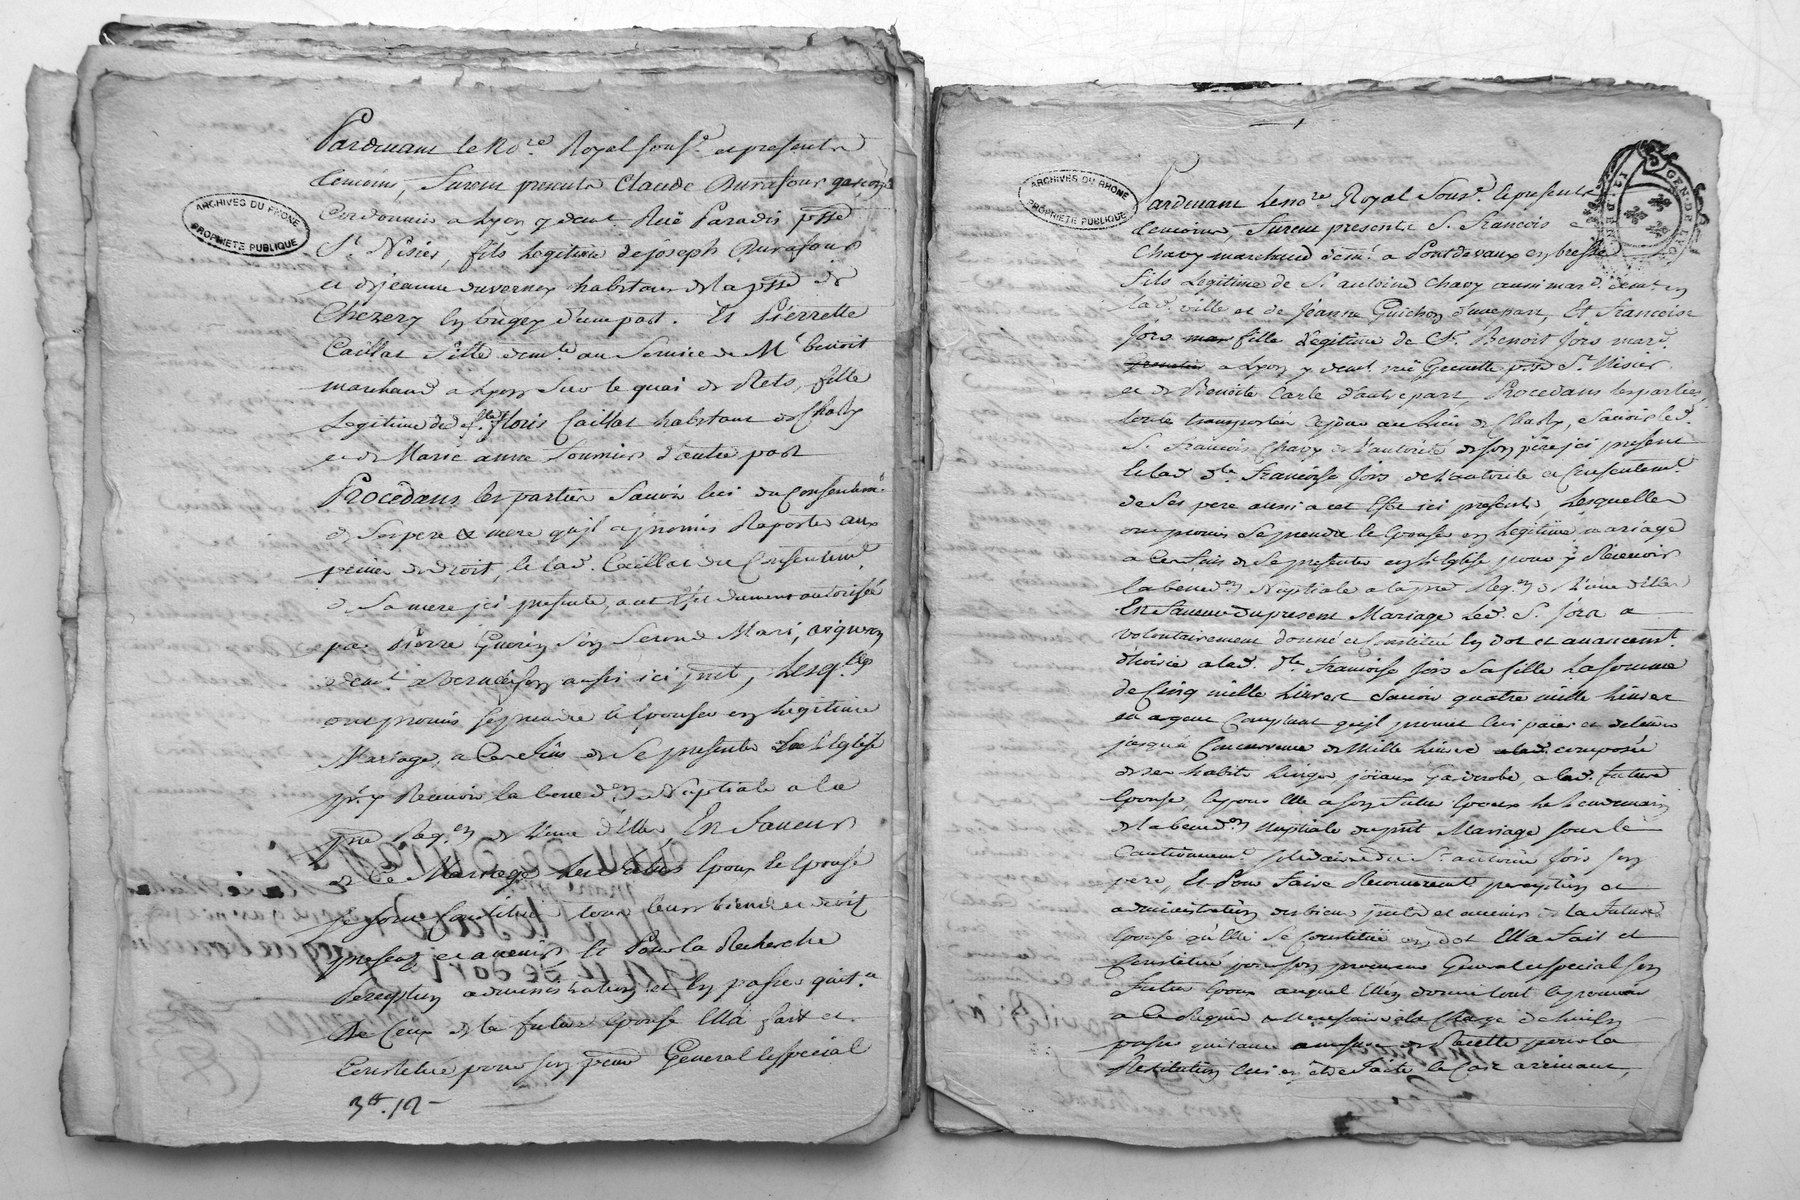 Pardevant le No.re Royal sous.é et presents
temoins, furent presents Claude Durafour garcon
Cordonnier a Lyon y dem.t Ruë Paradis psse
St. Nisier, fils Legitime de joseph Durafour
et de jeanne duvernex habitans de la psse de
Chezery en bugey d'une part. Et Pierrette
Caillat fille dem.te au Service de Mr. benoit
marchand a Lyon sur le quai de Retz, fille
Legitime de floris Caillat habitant de Chasly
et de Marie anne d'autre part
Procédans les parties Savoir lui du Consentem.t
de Ses pere & mere qu'il a promis Raporter aux
peines de droit, la lad. Caillat du Consentem.t
de Sa mere ici presente, a cet Effet dument autorisée
par Pierre Guerin Son Second Mari, vigneron
dem.t a aussi ici pnt, Lesq.lles
ont promis se prendre & Epouser en Legitime
Mariage, a Ces fins de Se presenter a l'Eglise
pr. y Recevoir la bened.on Nuptiale a la
pre Req.on de L'une d'Elles En faveur
de Ce Mariage Les futurs Epoux & Epouse
se sont Constitué tous leurs biens et droits
presens et avenir, Et Pour la Recherche
perception administration et En passer quit.e
de Ceux de la future Epouse Elle a fait et
Constitué pour son pcur General & special
3tt. 12 -
ARCHIVES DU RHONE
PROPRIETE PUBLIQUE
Pardevant le no.re Royal Sous.é & presents
temoins, furent presents S. Francois
Chavy marchand dem.t a Pontdevaux en bresse
fils Legitime de S. antoine Chavy aussi mar.d dem.t en
lad. ville et de Jeanne Guichon d'une part, Et Francoise
Jors fille Legitime de Sr. Benoit Jors mar.d
a Lyon y dem.t ruë Grenette psse St. Nisier
et de Benoite Carle d'autre part Procedans les parties,
toute transportée a jour au lieu de Chasly, Savoir led.
S. Francois Chavy de l'autorité de son père ici present
Et lad. dlle Francoise Jors de l'autorité et Consentem.t
de Ses pere aussi a cet Effet ici present, Lesquelles
ont promis Se prendre & Epouser en Legitime mariage
a Ces fins de Se presenter en Eglise pour y Recevoir
la bened.on Nuptiale a la pre Req.on de l'une d'Elles
En faveur du present Mariage Led. S. Jors a
volontairement donné et Constitué En dot et avancemt.
d'hoirie a lad. dlle Francoise Jors Sa fille La Somme
de Cinq mille Livres Savoir quatre mille Livres
en argent Comptant qu'il promet lui païer et delivrer
jusqu'a Concurrence de Mille Livres composée
de ses habits Linges, joïaux Garderobe, a lad. future
Epouse, & pour Elle a Son futur Epoux le Lendemain
de la bened.on Nuptiale du pnt Mariage sous le
Cautionnem.t Solidaire du S. antoine Son
pere, Et Pour faire Recouvrement perception et
administration des biens pnts et avenir de la future
Epouse qu'Elle Se Constitue en dot Elle a fait et
Constitué pour Son procureur General & special Son
futur Epoux auquel Elle donne tout le pouvoir
a Ce Requis & Necessaire a la Charge
passer quitance a mesure de Recette pour la
Restitution lui en être faite le Cas arrivant,
ARCHIVES DU RHONE
PROPRIETE PUBLIQUE
GEN. DE LYON